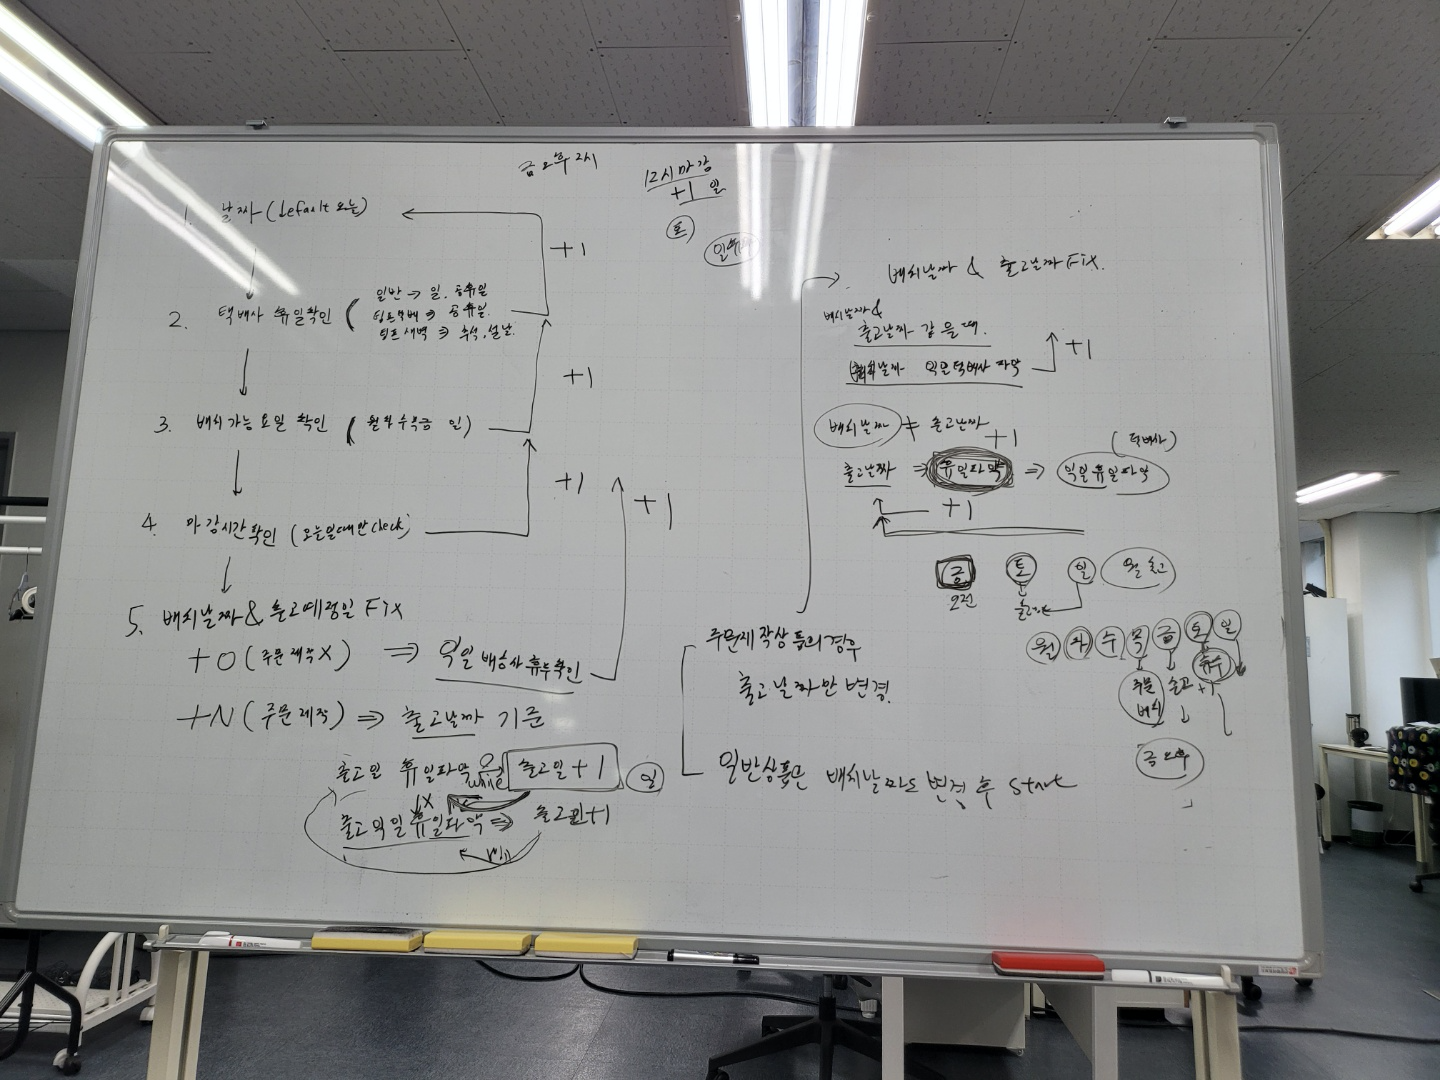 금 오후 2시
12시 마감
+1 일
토
1. 날짜 (default 오늘)
+1
2. 택배사 휴일확인 ( 일반 → 일, 공휴일
⇒ 공휴일.
새벽 ⇒ 추석, 설날.
+1
3. 배치가능요일 확인 ( 월화수목금 일)
+1
4. 마감시간확인 (오늘일때만 check)
+1
5. 배치날짜 & 출고예정일 Fix
+0 (주문제작X) ⇒ 익일 배송사 휴무확인
+N (주문제작) ⇒ 출고날짜 기준
출고일 휴일파악 while 출고일 + 1 일
출고익일휴일파악 ⇒ 출고일+1
배치날짜 & 출고날짜 Fix.
배치날짜 &
출고날짜 같을때.
익일택배사 파악 +1
배치날짜 ≠ 출고날짜
+1
(택배사)
출고날짜 ⇒ 휴일파악 ⇒ 익일휴일파악
+1
금 토 일 월 출고
오전
주문제작상품의경우
출고날짜만 변경.
일반상품은 배치날짜도 변경 후 start
월 화 수 목 금 토 일
휴무
주문 출고 +1
배치
금 오후